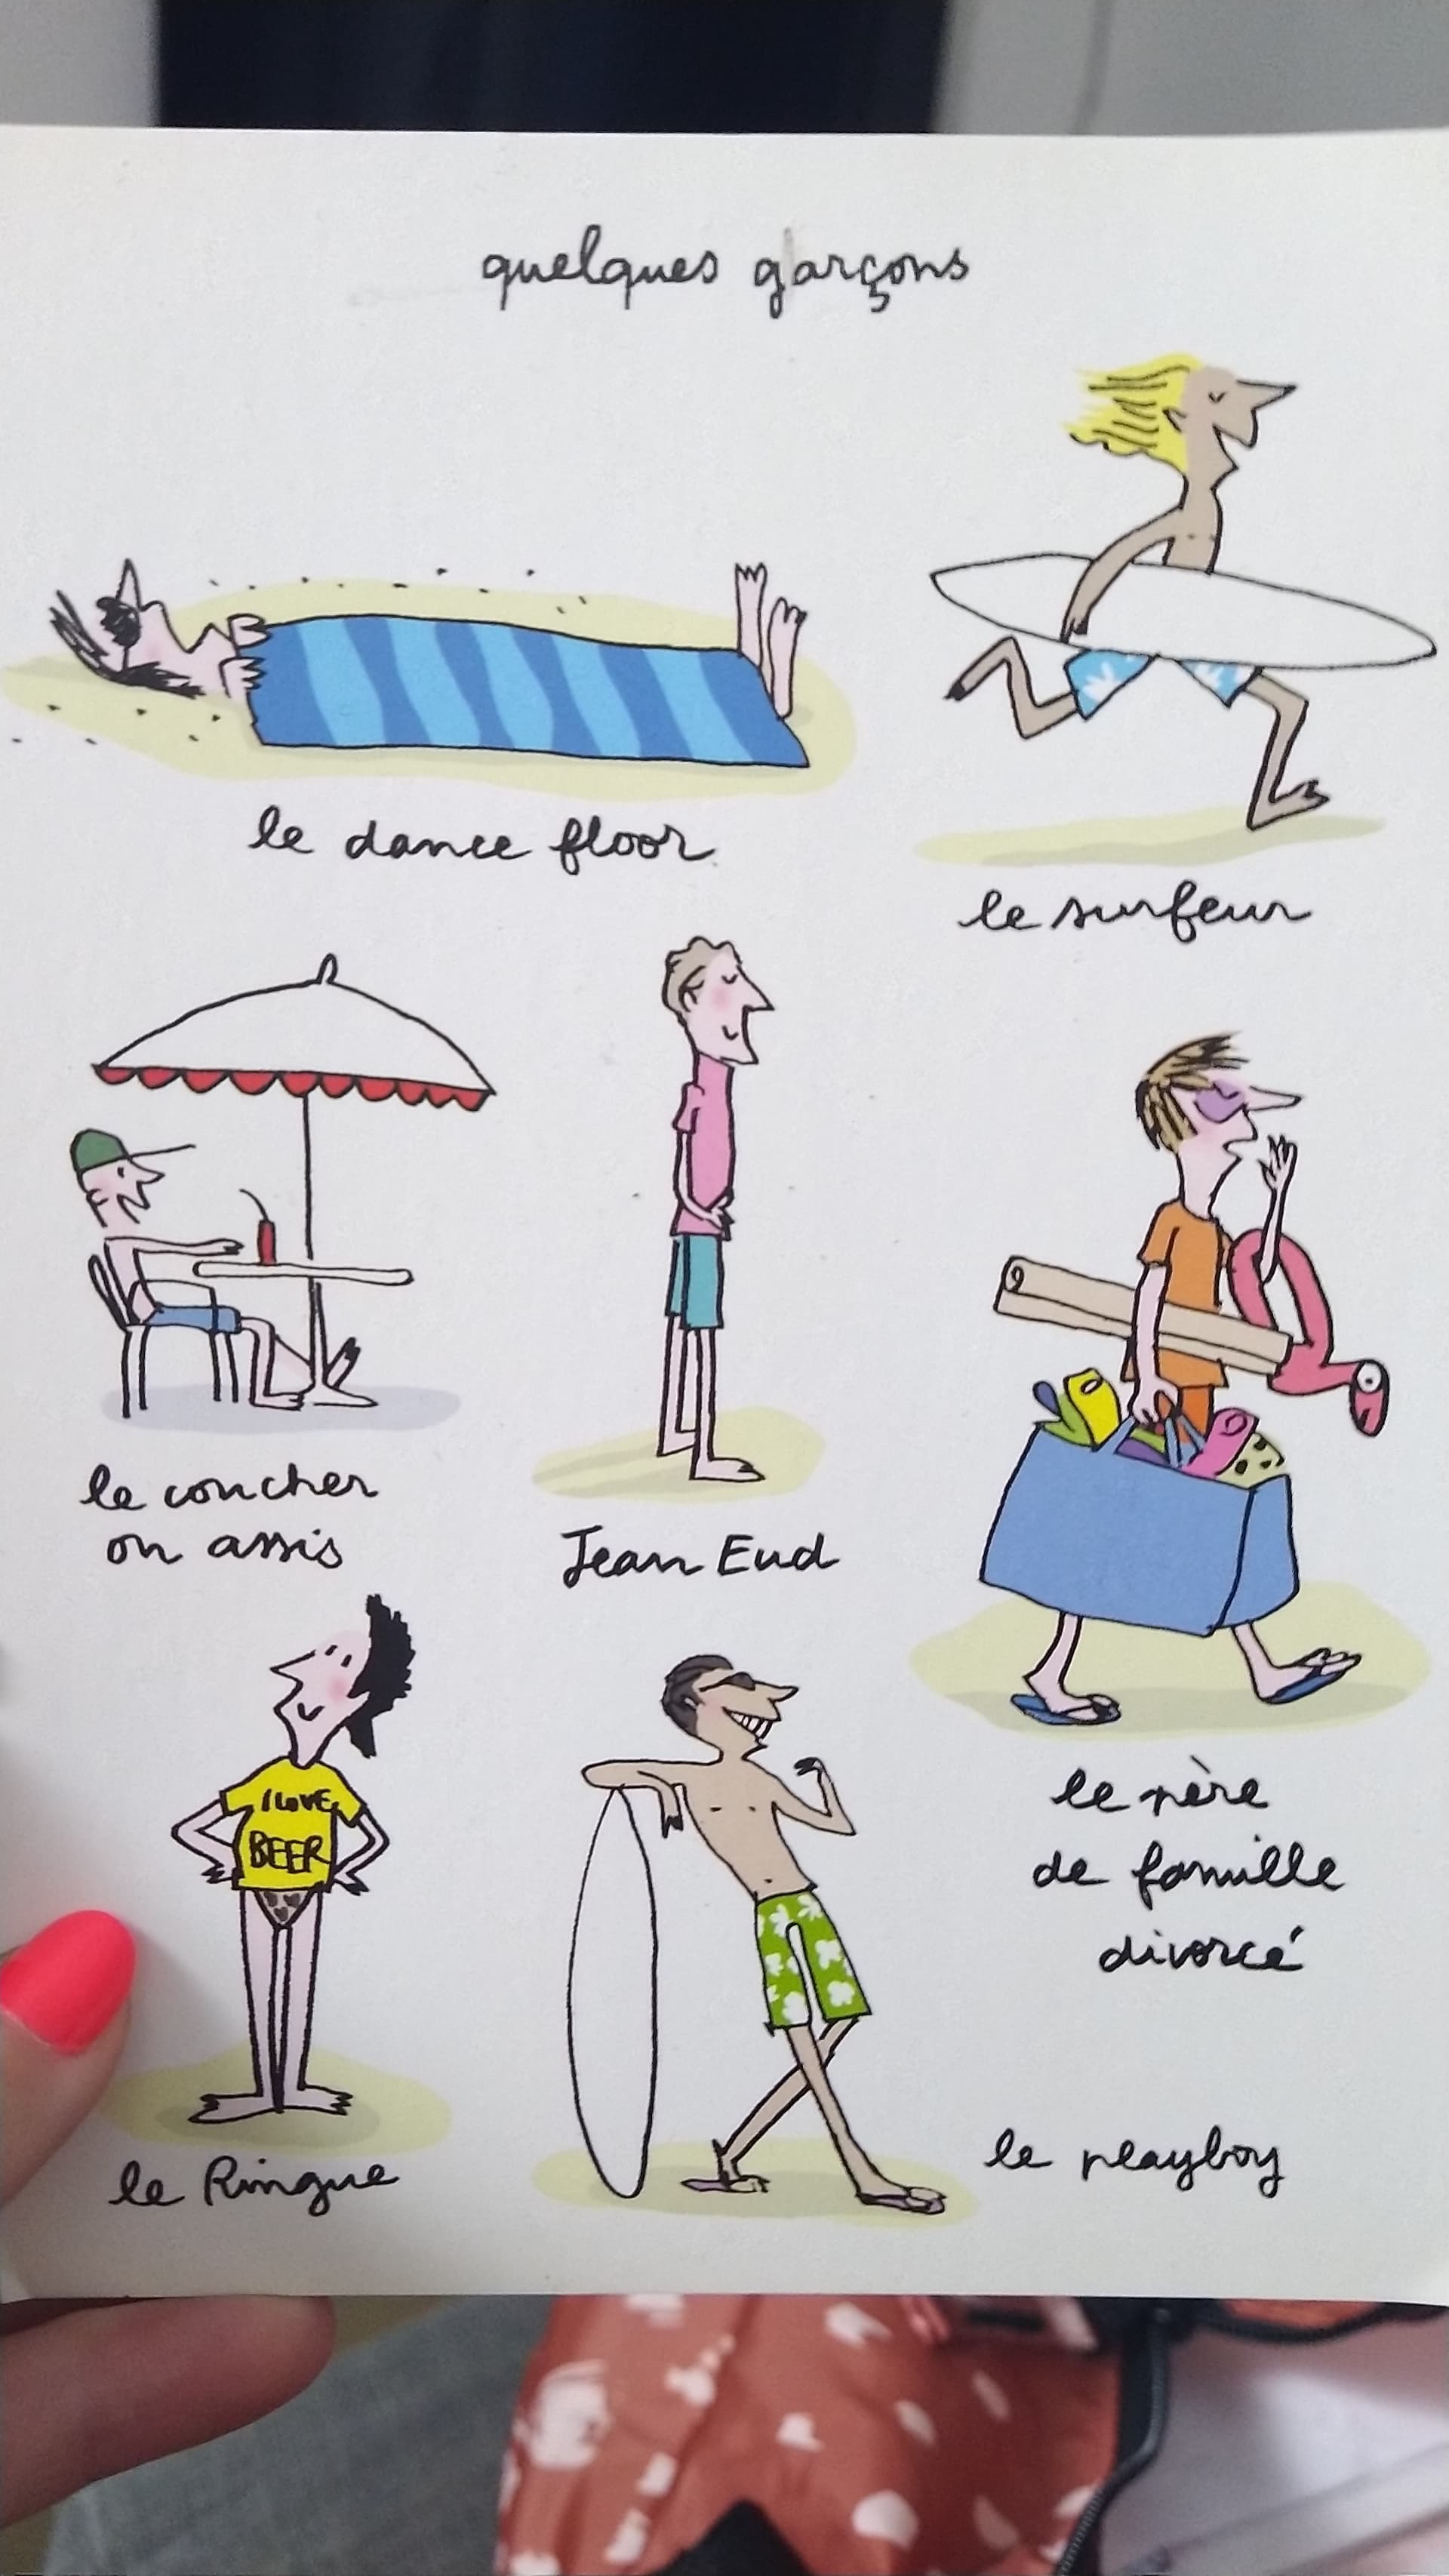 quelques garçons
le dance floor
le surfeur
le coucher
ou assis
Jean Eud
I LOVE
BEER
le père
de famille
divorcé
le Ringue
le playboy